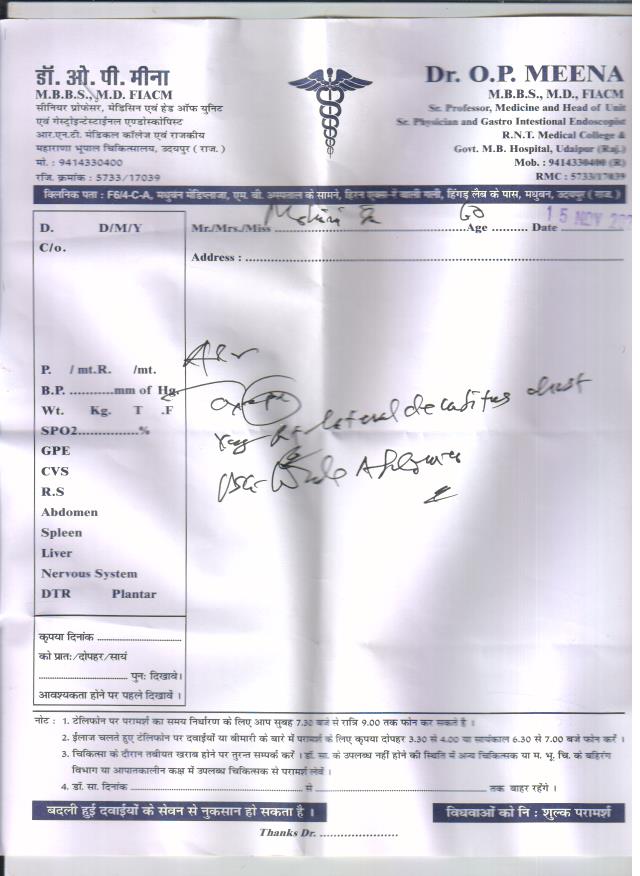 डॉ. ओ. पी. मीना
M.B.B.S., M.D. FIACM
सीनियर प्रोफेसर, मेडिसिन एवं हेड ऑफ युनिट
एवं गेस्ट्रोइन्टेस्टाईनल एण्डोस्कॉपिस्ट
आर.एन.टी. मेडिकल कॉलेज एवं राजकीय
महाराणा भूपाल चिकित्सालय, उदयपुर ( राज. )
मो. : 9414330400
रजि. क्रमांक : 5733/17039
Dr. O.P. MEENA
M.B.B.S., M.D., FIACM
Sr. Professor, Medicine and Head of Unit
Sr. Physician and Gastro Intestional Endoscopist
R.N.T. Medical College &
Govt. M.B. Hospital, Udaipur (Raj.)
Mob. : 9414330400 (R)
RMC : 5733/17039
क्लिनिक पता : F6/4-C-A, मधुवन मेडिप्लाजा, एम. बी. अस्पताल के सामने, हिरन एक्स-रे वाली गली, हिंगड़ लैब के पास, मधुवन, उदयपुर ( राज. )
D. D/M/Y
C/o.
Mr./Mrs./Miss Age 60 Date 15 NOV
Address :
P. / mt.R. /mt.
B.P. ...........mm of Hg.
Wt. Kg. T .F
SPO2...............%
GPE
CVS
R.S
Abdomen
Spleen
Liver
Nervous System
DTR Plantar
lateral decubitus chest
USG - Whole Abdomen
कृपया दिनांक
को प्रातः/दोपहर/सायं
पुनः दिखावें।
आवश्यकता होने पर पहले दिखावें ।
नोट : 1. टेलिफोन पर परामर्श का समय निर्धारण के लिए आप सुबह 7.30 बजे से रात्रि 9.00 तक फोन कर सकते है ।
2. ईलाज चलते हुए टेलिफोन पर दवाईयों या बीमारी के बारे में परामर्श के लिए कृपया दोपहर 3.30 से 4.00 या सायंकाल 6.30 से 7.00 बजे फोन करें ।
3. चिकित्सा के दौरान तबीयत खराब होने पर तुरन्त सम्पर्क करें । डॉ. सा. के उपलब्ध नहीं होने की स्थिति में अन्य चिकित्सक या म. भू. चि. के बहिरंग
विभाग या आपातकालीन कक्ष में उपलब्ध चिकित्सक से परामर्श लेवें ।
4. डॉ. सा. दिनांक से तक बाहर रहेंगे ।
बदली हुई दवाईयों के सेवन से नुकसान हो सकता है ।
विधवाओं को नि : शुल्क परामर्श
Thanks Dr. ......................